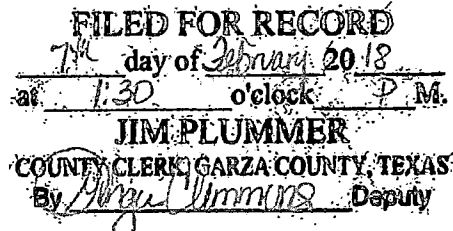 FILED FOR RECORD
7th day of February 2018
at 1:30 o'clock P M.
JIM PLUMMER
COUNTY CLERK, GARZA COUNTY, TEXAS
By Clemmons Deputy